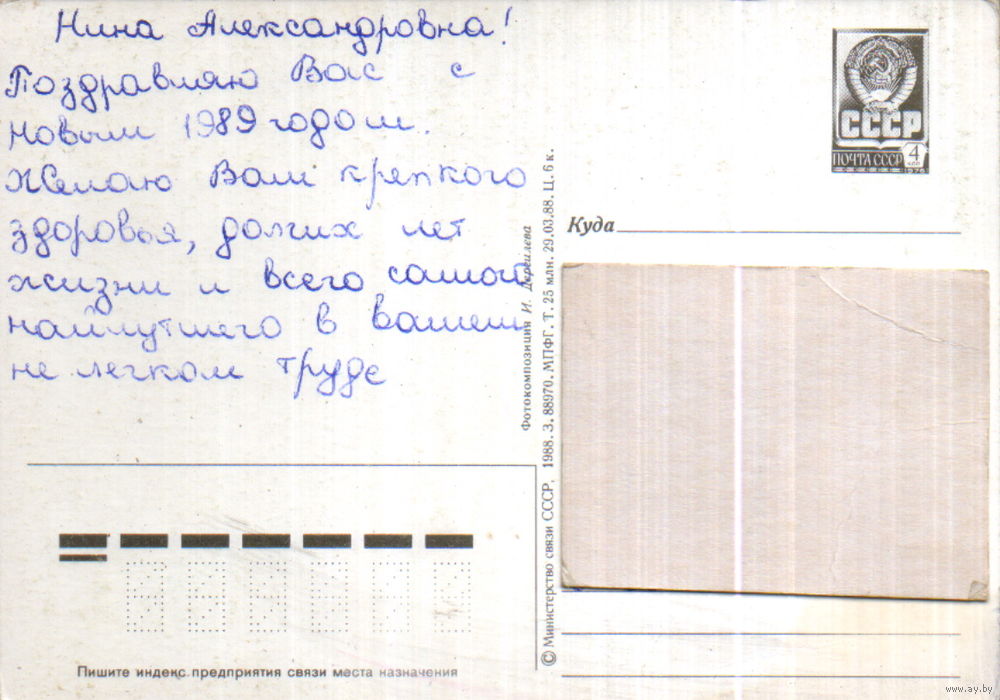 Нина Александровна!
Поздравляю Вас с
новым 1989 годом.
Желаю Вам крепкого
здоровья, долгих лет
жизни и всего самого
наилутшего в вашем
не легком труде
СССР
ПОЧТА СССР 4 коп
1976
Куда
Фотокомпозиция И. Дергилева
© Министерство связи СССР, 1988. З. 88970. МПФГ. Т. 25 млн. 29.03.88. Ц. 6 к.
Пишите индекс предприятия связи места назначения
www.ay.by